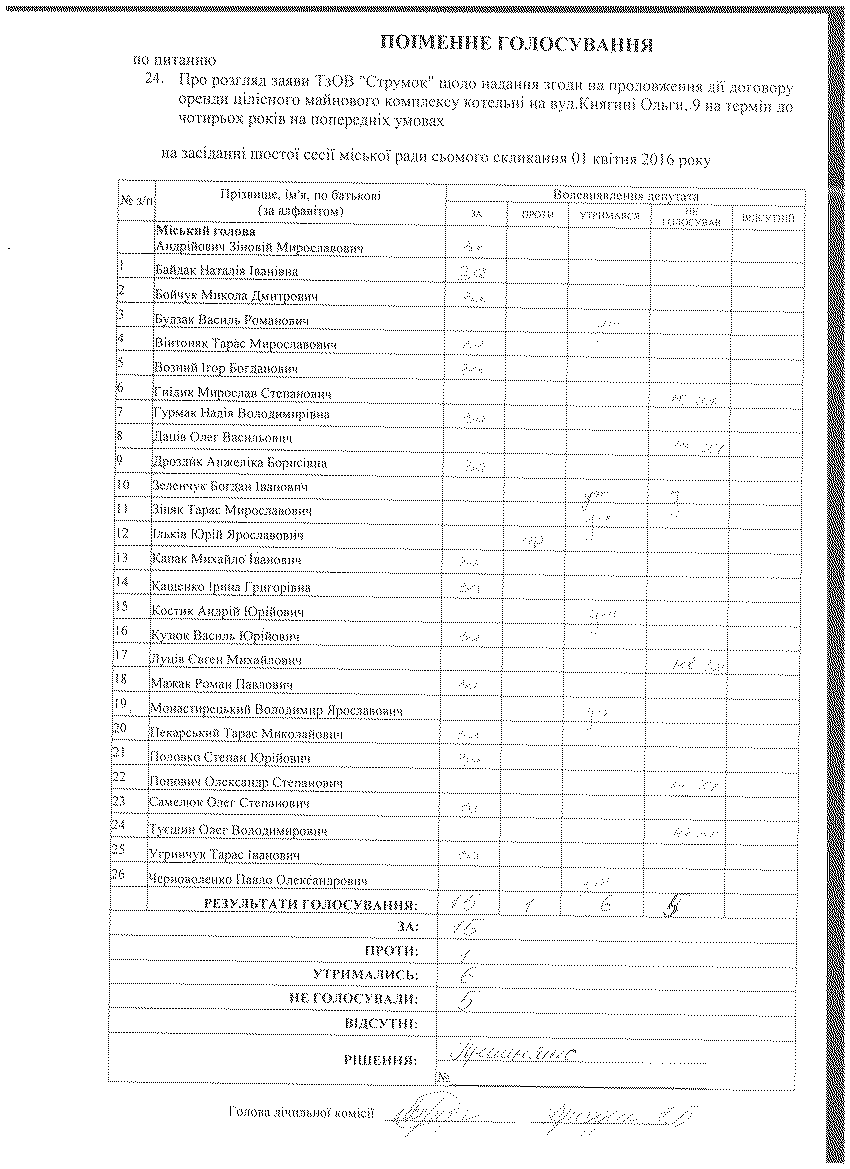 ПОІМЕННЕ ГОЛОСУВАННЯ
по питанню
24. Про розгляд заяви ТзОВ "Струмок" щодо надання згоди на продовження дії договору
оренди цілісного майнового комплексу котельні на вул.Княгині Ольги, 9 на термін до
чотирьох років на попередніх умовах
на засіданні шостої сесії міської ради сьомого скликання 01 квітня 2016 року
№ з/п Прізвище, ім'я, по батькові (за алфавітом) Волевиявлення депутата
ЗА ПРОТИ УТРИМАВСЯ НЕ ГОЛОСУВАВ ВІДСУТНІЙ
Міський голова
Андрійович Зіновій Мирославович за
1 Байдак Наталія Іванівна за
2 Бойчук Микола Дмитрович за
3 Будзак Василь Романович
4 Вінтоняк Тарас Мирославович за
5 Возний Ігор Богданович за
6 Гнідик Мирослав Степанович
7 Гурмак Надія Володимирівна за
8 Даців Олег Васильович
9 Дроздик Анжеліка Борисівна за
10 Зеленчук Богдан Іванович
11 Зіняк Тарас Мирославович
12 Ільків Юрій Ярославович пр
13 Капак Михайло Іванович за
14 Кащенко Ірина Григорівна за
15 Костик Андрій Юрійович
16 Кузюк Василь Юрійович за
17 Луців Євген Михайлович
18 Мажак Роман Павлович за
19 Монастирецький Володимир Ярославович
20 Пекарський Тарас Миколайович за
21 Половко Степан Юрійович за
22 Попович Олександр Степанович
23 Самелюк Олег Степанович за
24 Тусшин Олег Володимирович
25 Угринчук Тарас Іванович за
26 Черноволенко Павло Олександрович
РЕЗУЛЬТАТИ ГОЛОСУВАННЯ: 15 1 6 5
ЗА: 15
ПРОТИ: 1
УТРИМАЛИСЬ: 6
НЕ ГОЛОСУВАЛИ: 5
ВІДСУТНІ:
РІШЕННЯ: Прийнято
№
Голова лічильної комісії